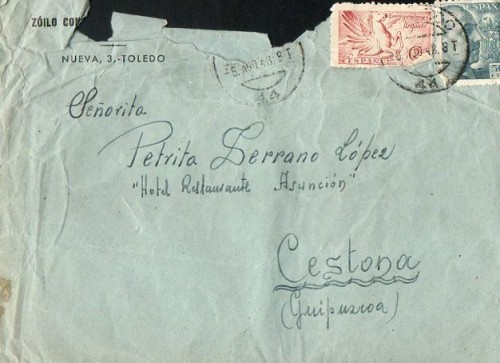 ZÓILO
NUEVA, 3,-TOLEDO
44
ESPAÑA
ESPAÑA
44
Señorita
Petrita Serrano López
"Hotel Restaurante Asunción"
Cestona
(Guipuzcoa)